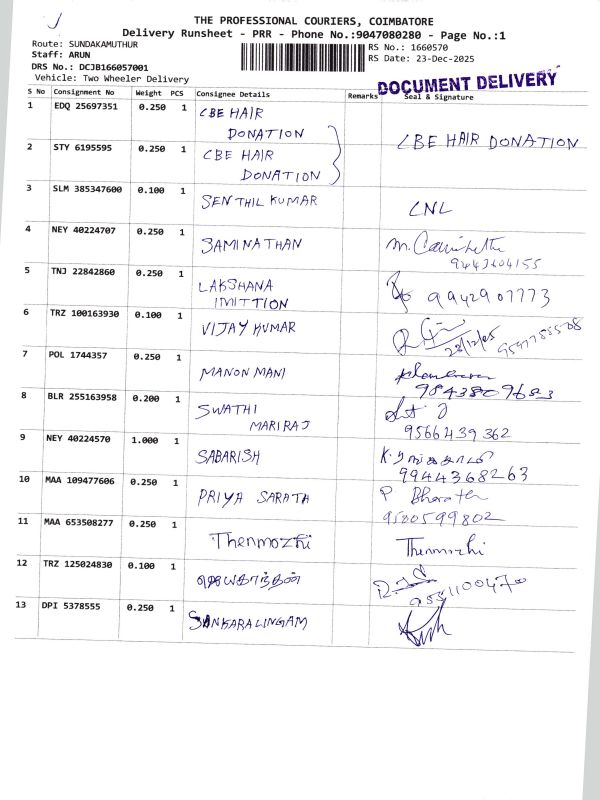 THE PROFESSIONAL COURIERS, COIMBATORE
Delivery Runsheet - PRR - Phone No.:9047080280 - Page No.:1
Route: SUNDAKAMUTHUR
RS No.: 1660570
Staff: ARUN
RS Date: 23-Dec-2025
DRS No.: DCJB166057001
Vehicle: Two Wheeler Delivery
DOCUMENT DELIVERY
S No Consignment No Weight PCS Consignee Details Remarks Seal & Signature
1 EDQ 25697351 0.250 1 CBE HAIR DONATION
CBE HAIR DONATION
2 STY 6195595 0.250 1 CBE HAIR DONATION
3 SLM 385347600 0.100 1 SENTHIL KUMAR CNL
4 NEY 40224707 0.250 1 SAMINATHAN
5 TNJ 22842860 0.250 1 LAKSHANA IMITTION 9942907773
6 TRZ 100163930 0.100 1 VIJAY KUMAR
7 POL 1744357 0.250 1 MANON MANI 9843809683
8 BLR 255163958 0.200 1 SWATHI MARIRAJ 9566439362
9 NEY 40224570 1.000 1 SABARISH 9944368263
10 MAA 109477606 0.250 1 PRIYA SARATA P Bharathi 9500599802
11 MAA 653508277 0.250 1 Thenmozhi Thenmozhi
12 TRZ 125024830 0.100 1 ஜெயகாந்தன்
13 DPI 5378555 0.250 1 SANKARALINGAM